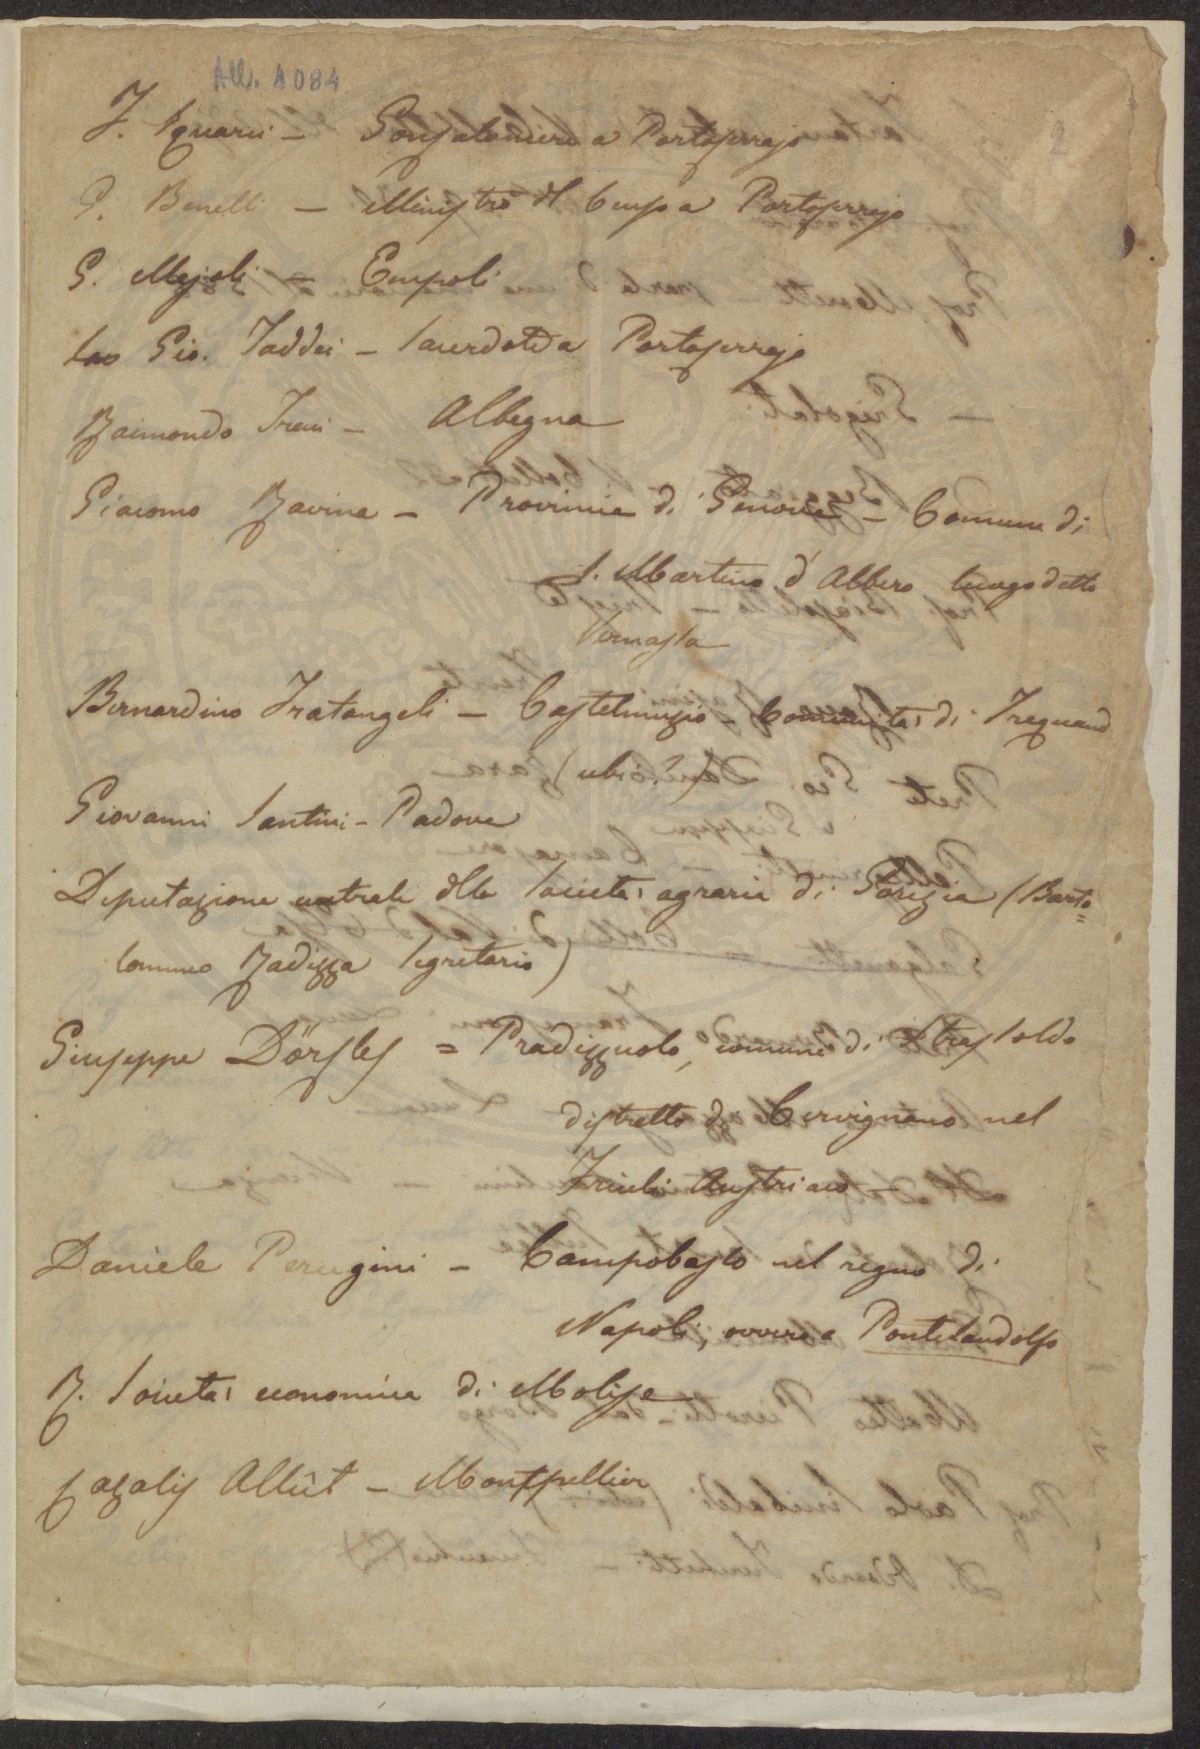 All. A 084
2
F. Squarci - Gonfaloniere a Portoferrajo
P. Benelli - Ministro del Censo a Portoferrajo
G. Mejoli - Empoli
Gio. Taddei - Sacerdote a Portoferrajo
Raimondo Treni - Albegna
Giacomo Ravina - Provincia di Genova - Comune di
S. Martino d'Albero luogo detto
Vernasla
Bernardino Fratangeli - Castelmuzio - Comunità di Trequand
(ubi?)
Giovanni Santini - Padova
Deputazione centrale della Società agraria di Gorizia (Barto=
lommeo Radizza Segretario)
Giuseppe Dörfles = Pradizzuolo, comune di Strassoldo
distretto di Cervignano nel
Friuli Austriaco -
Daniele Perugini - Campobasso nel regno di
Napoli, ovvero a Pontelandolfo
R. Società economica di Molise
Cazalis Allût - Montpellier